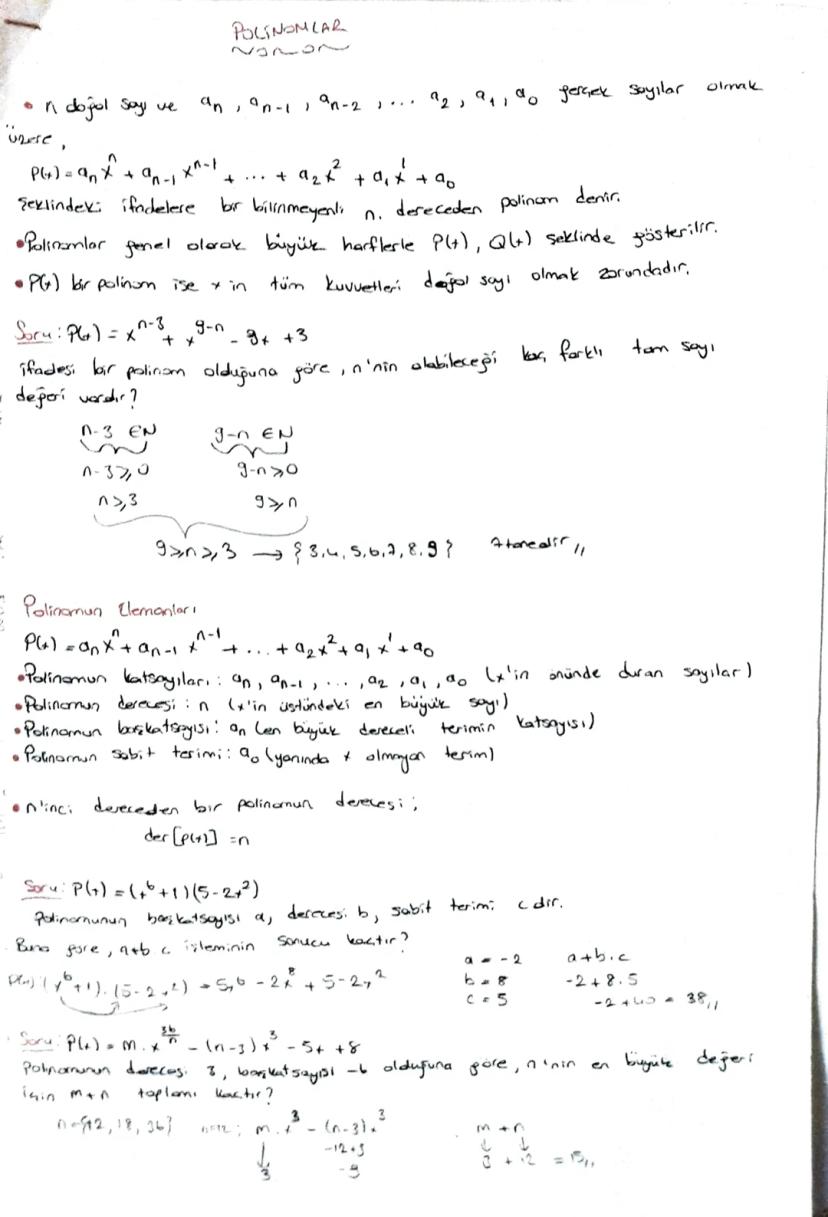 POLİNOMLAR
• n doğal sayı ve aₙ, aₙ₋₁, aₙ₋₂, ... a₂, a₁, a₀ gerçek sayılar olmak
üzere,
P(x) = aₙxⁿ + aₙ₋₁xⁿ⁻¹ + ... + a₂x² + a₁x¹ + a₀
şeklindeki ifadelere bir bilinmeyenli n. dereceden polinom denir.
• Polinomlar genel olarak büyük harflerle P(x), Q(x) şeklinde gösterilir.
• P(x) bir polinom ise x in tüm kuvvetleri doğal sayı olmak zorundadır.
Soru: P(x) = xⁿ⁻³ + x⁹⁻ⁿ - 9x + 3
ifadesi bir polinom olduğuna göre, n'nin alabileceği kaç farklı tam sayı
değeri vardır?
n-3 ∈N 9-n ∈N
n-3≥0 9-n≥0
n≥3 9≥n
9≥n≥3 → {3,4,5,6,7,8,9} 7 tanedir //
Polinomun Elemanları
P(x) = aₙxⁿ + aₙ₋₁xⁿ⁻¹ + ... + a₂x² + a₁x¹ + a₀
• Polinomun katsayıları: aₙ, aₙ₋₁, ..., a₂, a₁, a₀ (x'in önünde duran sayılar)
• Polinomun derecesi: n (x'in üstündeki en büyük sayı)
• Polinomun başkatsayısı: aₙ (en büyük dereceli terimin katsayısı)
• Polinomun sabit terimi: a₀ (yanında x olmayan terim)
• n'inci dereceden bir polinomun derecesi;
der[P(x)] = n
Soru: P(x) = (x⁶+1)(5-2x²)
Polinomunun başkatsayısı a, derecesi b, sabit terimi c dir.
Buna göre, a+b.c işleminin sonucu kaçtır?
a = -2 a+b.c
b = 8 -2+8.5
c = 5 -2+40 = 38 //
P(x)=(x⁶+1).(5-2x²) = 5x⁶ - 2x⁸ + 5 - 2x²
Soru: P(x) = m.x^(36/n) - (n-3)x³ - 5x + 8
Polinomunun derecesi 3, başkatsayısı -6 olduğuna göre, n'nin en büyük değeri
için m+n toplamı kaçtır?
n={12, 18, 36} n=12; m.x³ - (n-3)x³ m + n
↓ -12+3 ↓ ↓
3 -9 3 + 12 = 15 //